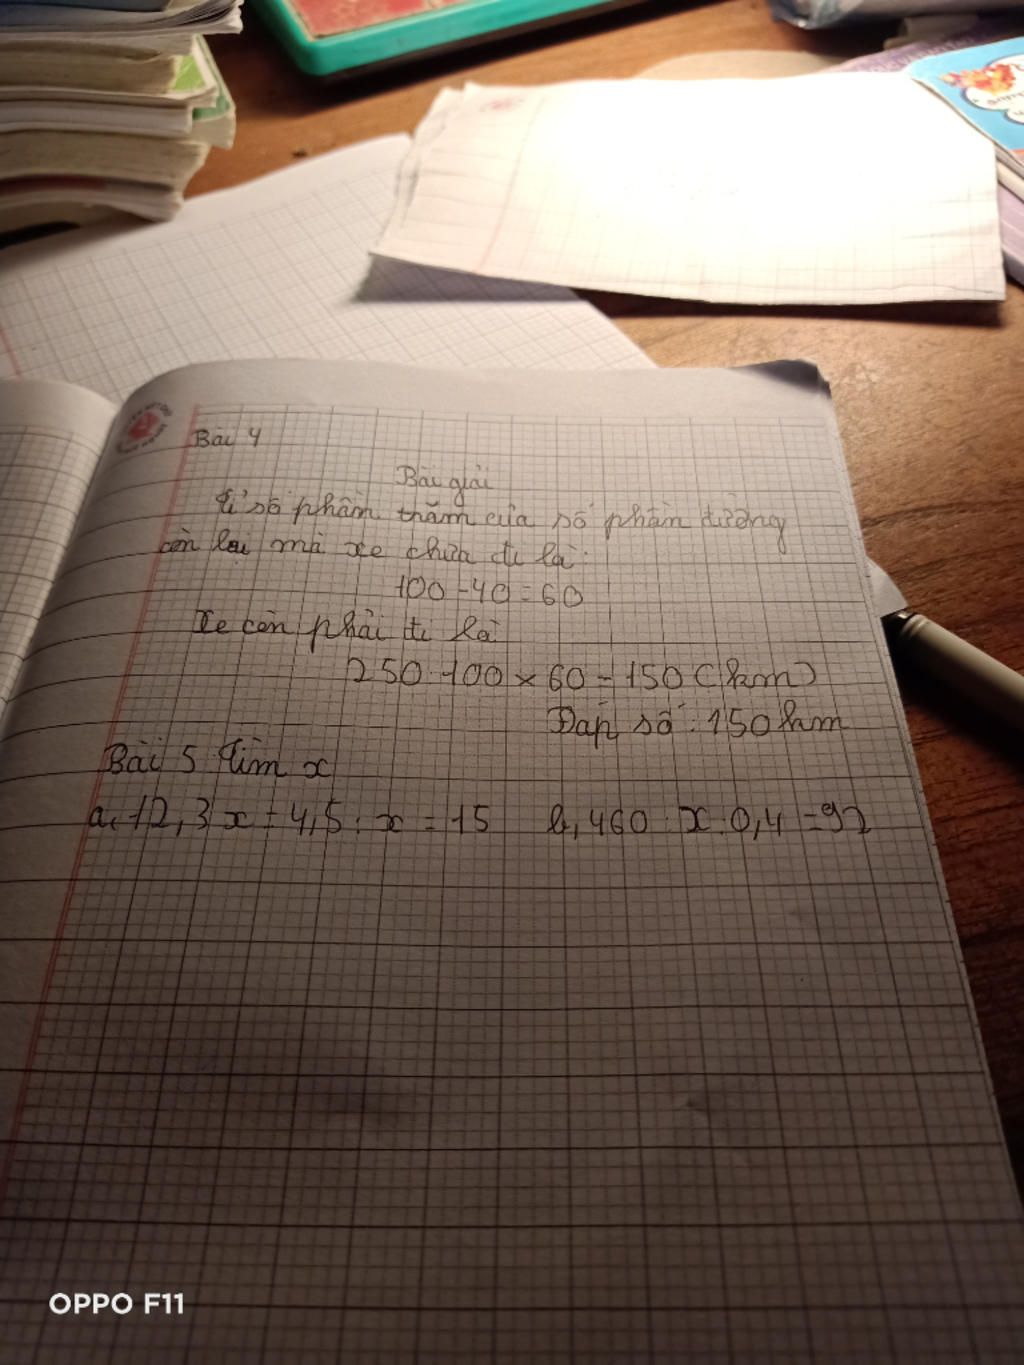 Bài 4
Bài giải
Tỉ số phần trăm của số phần đường
còn lại mà xe chưa đi là:
100 - 40 = 60
Xe còn phải đi là
250 : 100 x 60 = 150 (km)
Đáp số : 150 km
Bài 5 Tìm x
a, 12,3 : x - 4,5 : x = 15 b, 460 : x : 0,4 = 92
OPPO F11